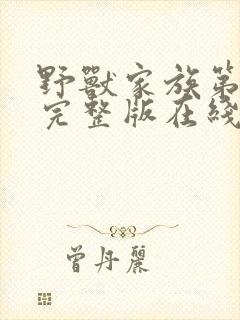 野獸家族第
完整版在綫
曾丹麗